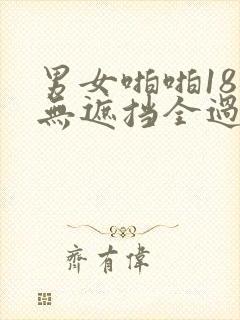 男女啪啪18
無遮挡全過
齊有偉